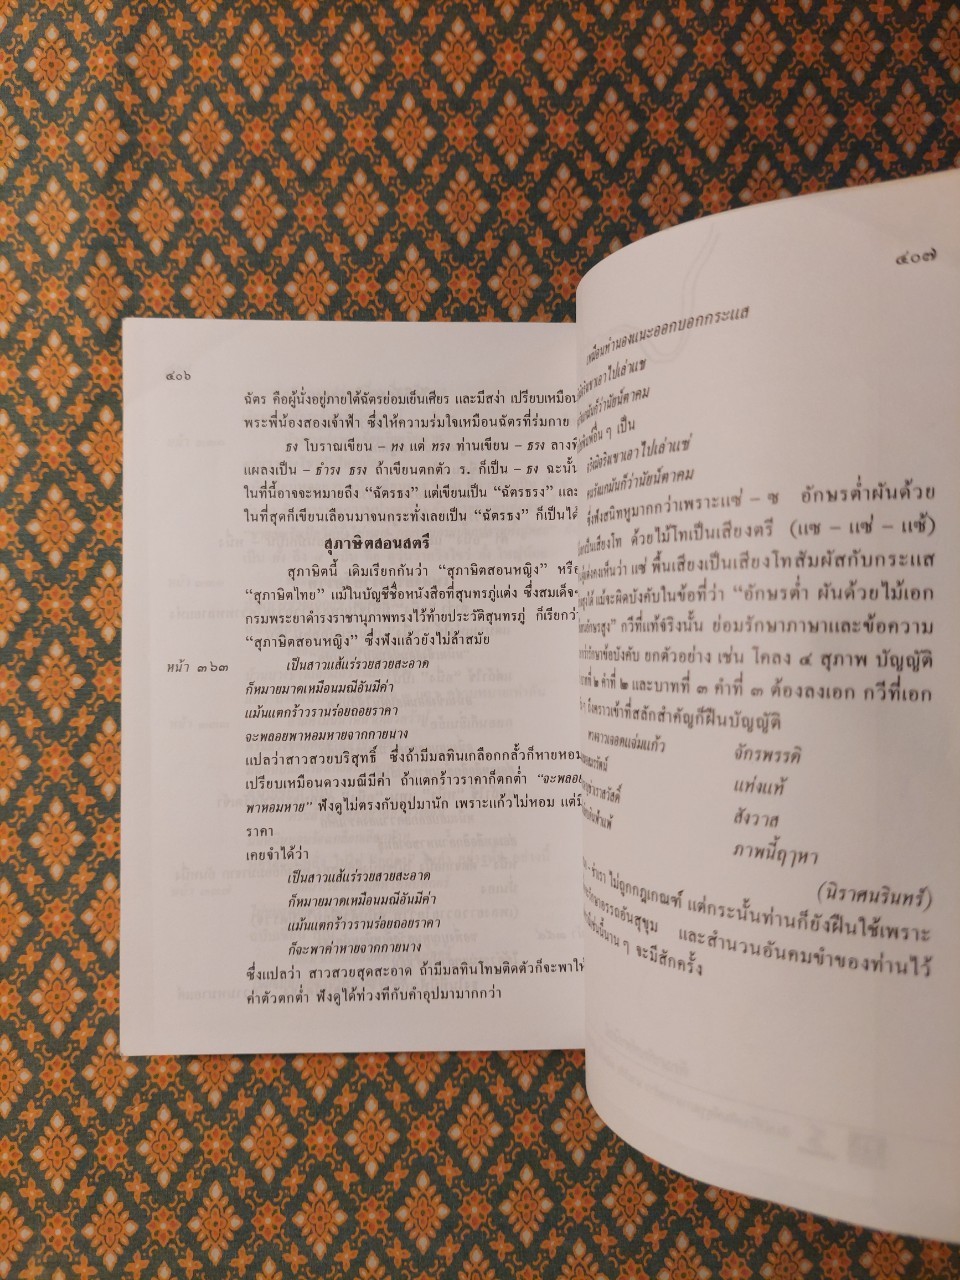 ๔๐๖
ฉัตร คือผู้นั่งอยู่ภายใต้ฉัตรย่อมเย็นเศียร และมีสง่า เปรียบเหมือน
พระพี่น้องสองเจ้าฟ้า ซึ่งให้ความร่มใจเหมือนฉัตรที่ร่มกาย
ธง โบราณเขียน – ทง แต่ ทรง ท่านเขียน – ธรง ลางที
แผลงเป็น – ธำรง ธรง ถ้าเขียนตกตัว ร. ก็เป็น – ธง ฉะนั้น
ในที่นี้อาจจะหมายถึง “ฉัตรธง” แต่เขียนเป็น “ฉัตรธรง” และ
ในที่สุดก็เขียนเลือนมาจนกระทั่งเลยเป็น “ฉัตรธง” ก็เป็นได้
สุภาษิตสอนสตรี
สุภาษิตนี้ เดิมเรียกกันว่า “สุภาษิตสอนหญิง” หรือ
“สุภาษิตไทย” แม้ในบัญชีชื่อหนังสือที่สุนทรภู่แต่ง ซึ่งสมเด็จฯ
กรมพระยาดำรงราชานุภาพทรงไว้ท้ายประวัติสุนทรภู่ ก็เรียกว่า
“สุภาษิตสอนหญิง” ซึ่งฟังแล้วยังไม่ล้าสมัย
หน้า ๓๖๓ เป็นสาวแส้แร่รวยสวยสะอาด
ก็หมายมาดเหมือนมณีอันมีค่า
แม้นแตกร้าวรานร่อยถอยราคา
จะพลอยพาหอมหายจากกายนาง
แปลว่าสาวสวยบริสุทธิ์ ซึ่งถ้ามีมลทินเกลือกกลั้วก็หายหอม
เปรียบเหมือนดวงมณีมีค่า ถ้าแตกร้าวราคาก็ตกต่ำ “จะพลอย
พาหอมหาย” ฟังดูไม่ตรงกับอุปมานัก เพราะแก้วไม่หอม แต่มี
ราคา
เคยจำได้ว่า
เป็นสาวแส้แร่รวยสวยสะอาด
ก็หมายมาดเหมือนมณีอันมีค่า
แม้นแตกร้าวรานร่อยถอยราคา
ก็จะพาค่าหายจากกายนาง
ซึ่งแปลว่า สาวสวยสุดสะอาด ถ้ามีมลทินโทษติดตัวก็จะพาให้
ค่าตัวตกต่ำ ฟังดูได้ท่วงทีกับคำอุปมามากกว่า
๔๐๗
เหมือนทำนองแนะออกบอกกระแส
จริงเขาเอาไปเล่าแช
ก็ว่านัยน์ตาคม
อื่น ๆ เป็น
จริงเขาเอาไปเล่าแซ่
ก็ว่านัยน์ตาคม
ฟังสนิทหูมากกว่าเพราะแซ่ – ซ อักษรต่ำผันด้วย
เป็นเสียงโท ด้วยไม้โทเป็นเสียงตรี (แซ – แซ่ – แซ้)
คงเห็นว่า แซ่ พื้นเสียงเป็นเสียงโทสัมผัสกับกระแส
ได้ แม้จะผิดบังคับในข้อที่ว่า “อักษรต่ำ ผันด้วยไม้เอก
อักษรสูง” กวีที่แท้จริงนั้น ย่อมรักษาภาษาและข้อความ
กว่ารักษาข้อบังคับ ยกตัวอย่าง เช่น โคลง ๔ สุภาพ บัญญัติ
บาทที่ ๒ คำที่ ๒ และบาทที่ ๓ คำที่ ๓ ต้องลงเอก กวีที่เอก
ถึงคราวเข้าที่สลักสำคัญก็ฝืนบัญญัติ
จักรพรรดิ
แท่งแท้
สังวาส
ภาพนี้ฤๅหา
(นิราศนรินทร์)
ไม่ถูกกฎเกณฑ์ แต่กระนั้นท่านก็ยังฝืนใช้เพราะ
รักษาอรรถอันสุขุม และสำนวนอันคมขำของท่านไว้
นี้นาน ๆ จะมีสักครั้ง